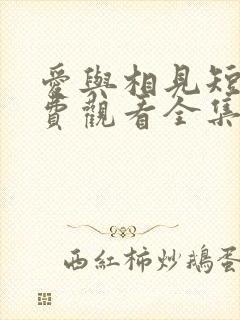 愛與相見短
費觀看全集
西紅柿炒鵝蛋